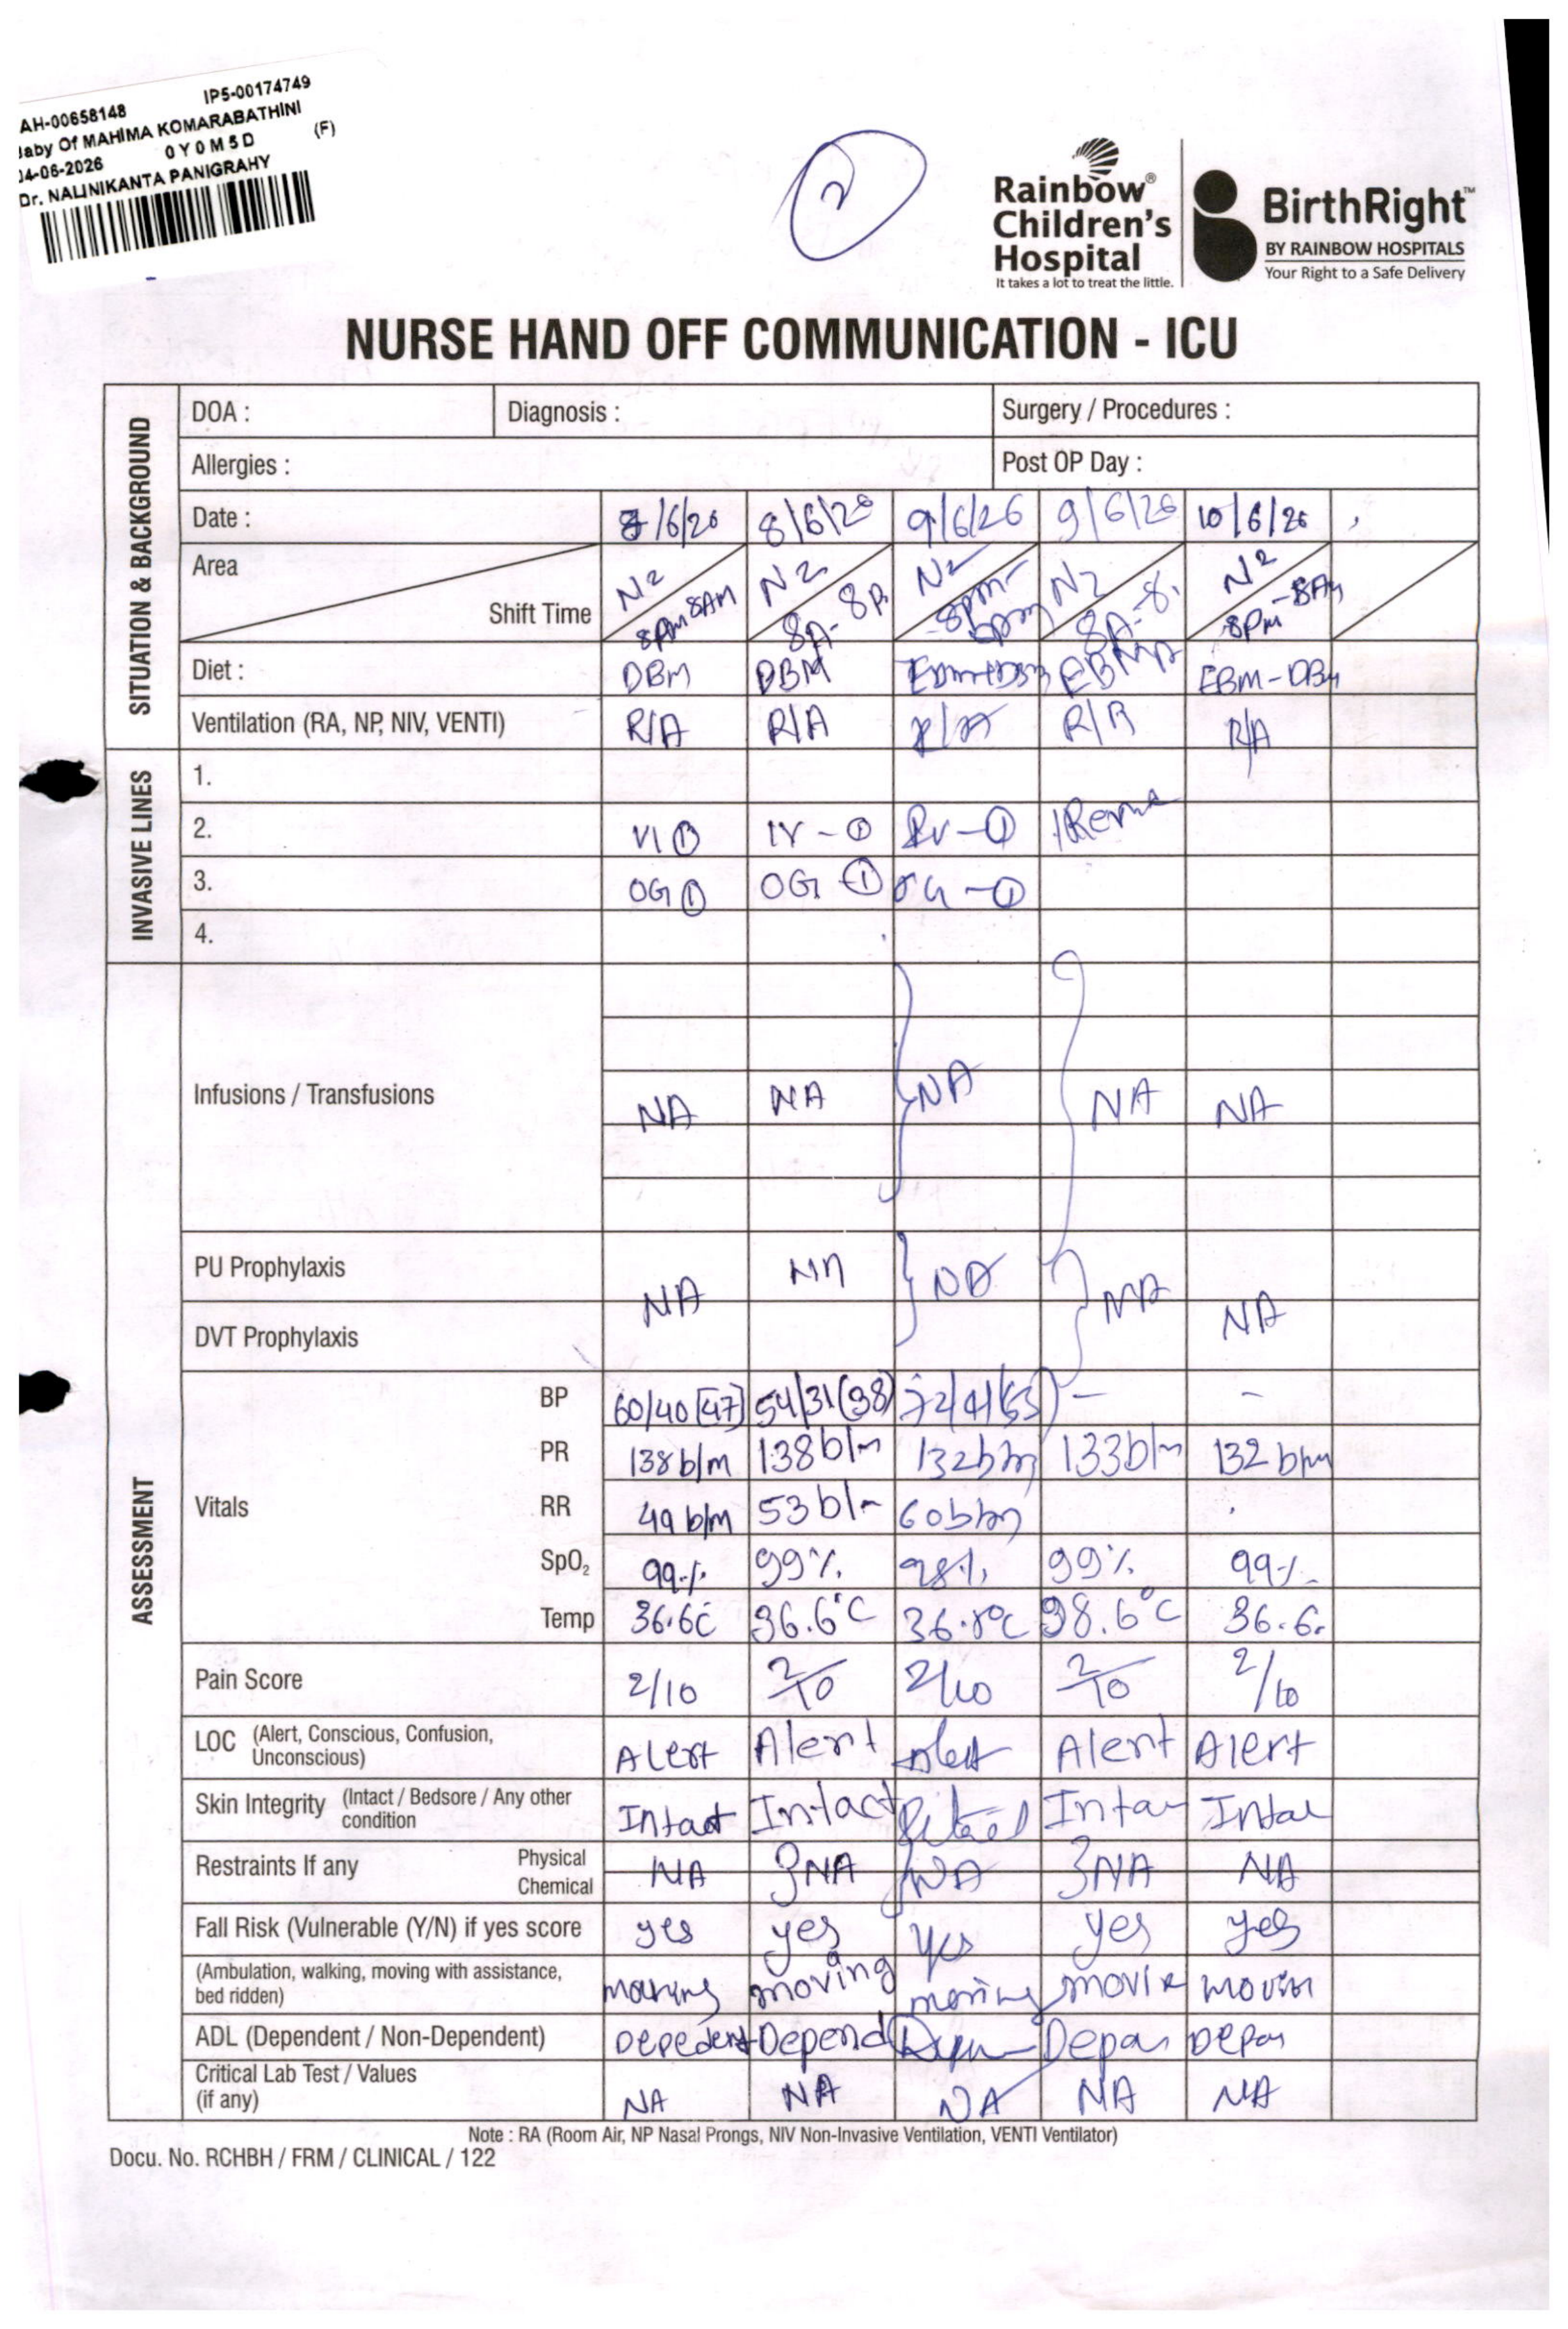 AH-00658148 IP5-00174749
Baby Of MAHIMA KOMARABATHINI
04-06-2026 0Y0M5D (F)
Dr. NALINIKANTA PANIGRAHY
2
Rainbow® Children's Hospital
It takes a lot to treat the little.
BirthRight™
BY RAINBOW HOSPITALS
Your Right to a Safe Delivery
NURSE HAND OFF COMMUNICATION - ICU
SITUATION & BACKGROUND
DOA : Diagnosis : Surgery / Procedures :
Allergies : Post OP Day :
Date : /6/26 8/6/26 9/6/26 9/6/26 10/6/26
Area N2 N2 N2 N2 N2
Shift Time 8PM 8AM 8A-8P 8pm- 8A-8. 8PM-8AM
Diet : DBM DBM EBM EBM-DBM
Ventilation (RA, NP, NIV, VENTI) R/A R/A R/A R/A R/A
INVASIVE LINES
1.
2. VI① IV-① IV-①
3. OG① OG① OG-①
4.
ASSESSMENT
Infusions / Transfusions NA NA NA NA NA
PU Prophylaxis NA NA NA NA NA
DVT Prophylaxis
Vitals
BP 60/40[47] 54/31(38) 72/41(53) - -
PR 138b/m 138b/m 132b/m 133b/m 132bpm
RR 49b/m 53b/m 60b/m
SpO2 99% 99% 98% 99% 99%
Temp 36.6C 36.6°C 36.8°C 98.6°C 36.6.
Pain Score 2/10 2/10 2/10 2/10 2/10
LOC (Alert, Conscious, Confusion, Unconscious) Alert Alert Alert Alert Alert
Skin Integrity (Intact / Bedsore / Any other condition Intact Intact Inta Inta
Restraints If any Physical Chemical NA NA NA NA NA
Fall Risk (Vulnerable (Y/N) if yes score yes yes yes yes yes
(Ambulation, walking, moving with assistance, bed ridden) moving moving moving
ADL (Dependent / Non-Dependent) Depedent Depend
Critical Lab Test / Values (if any) NA NA NA NA NA
Note : RA (Room Air, NP Nasal Prongs, NIV Non-Invasive Ventilation, VENTI Ventilator)
Docu. No. RCHBH / FRM / CLINICAL / 122